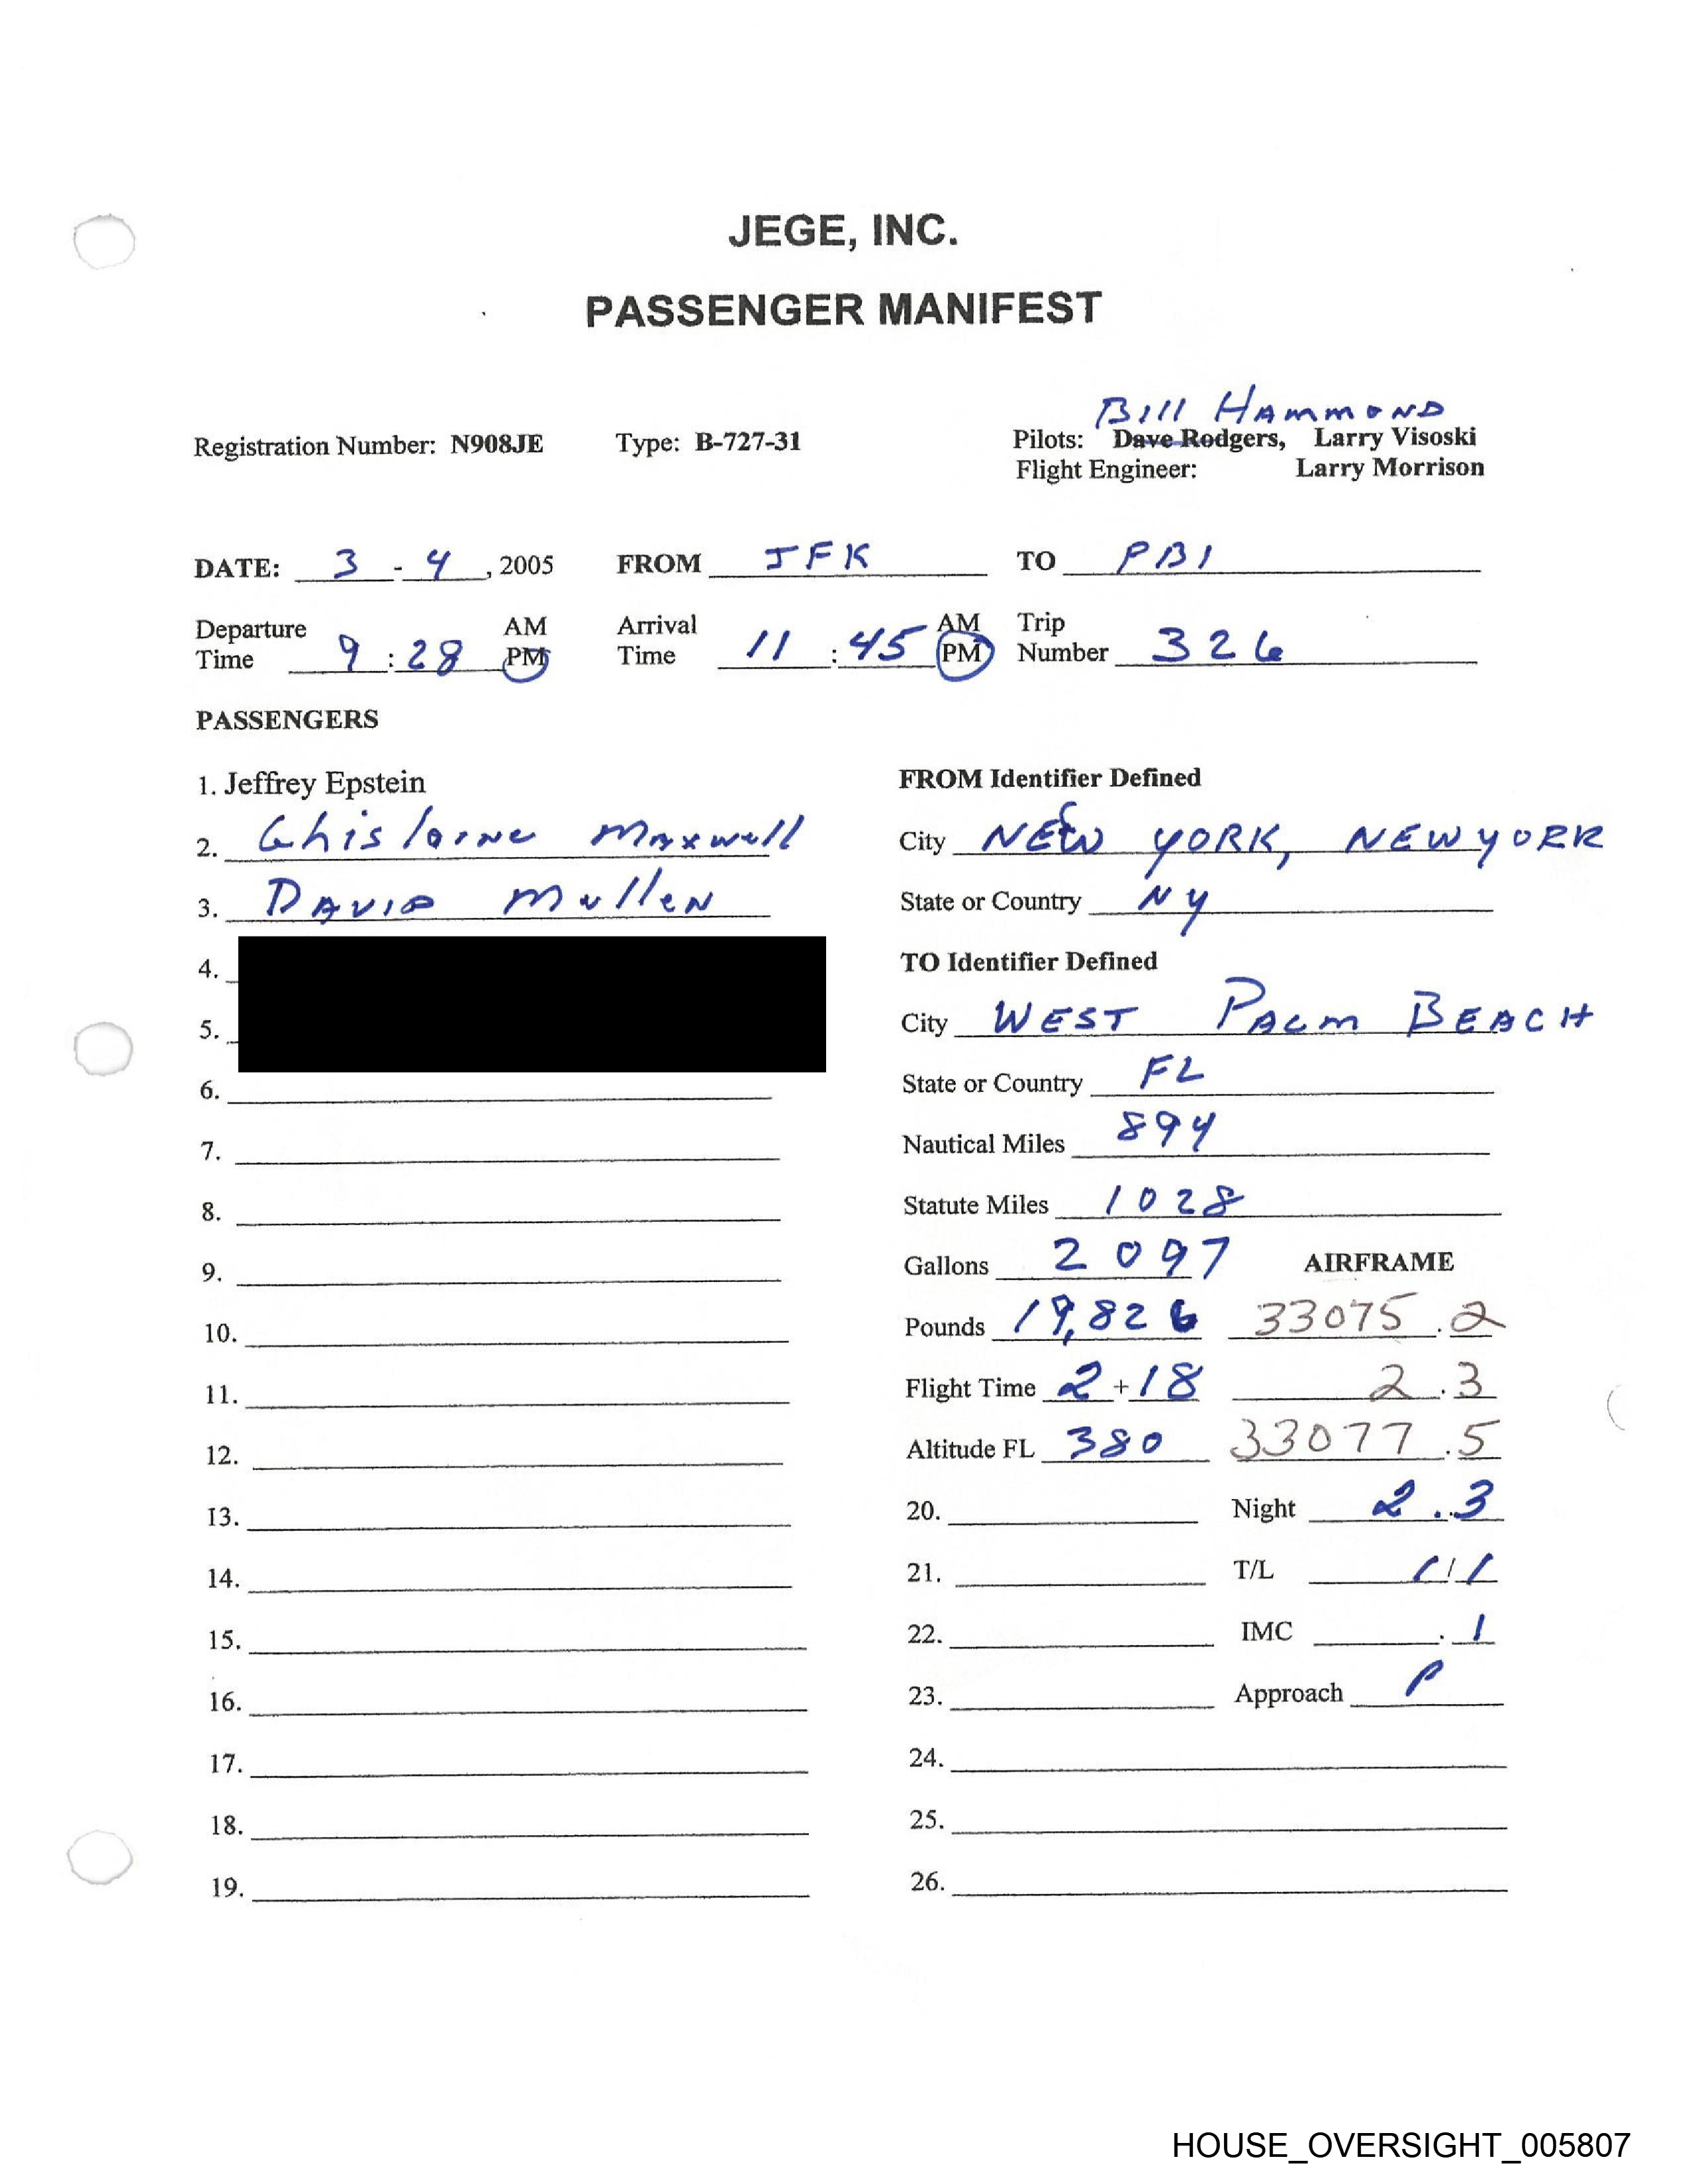 JEGE, INC.
PASSENGER MANIFEST
Bill HAMMOND
Registration Number: N908JE Type: B-727-31 Pilots: Dave Rodgers, Larry Visoski
Flight Engineer: Larry Morrison
DATE: 3 - 4, 2005 FROM JFK TO PBI
Departure Time 9:28 AM PM Arrival Time 11:45 AM PM Trip Number 326
PASSENGERS
1. Jeffrey Epstein
2. Ghislaine Maxwell
3. DAVID MulleN
4.
5.
6.
7.
8.
9.
10.
11.
12.
13.
14.
15.
16.
17.
18.
19.
FROM Identifier Defined
City NEW YORK, NEW YORK
State or Country NY
TO Identifier Defined
City WEST PALM BEACH
State or Country FL
Nautical Miles 894
Statute Miles 1028
Gallons 2097 AIRFRAME
Pounds 19,826 33075.2
Flight Time 2+18 2.3
Altitude FL 380 33077.5
20. Night 2.3
21. T/L 1/1
22. IMC .1
23. Approach P
24.
25.
26.
HOUSE_OVERSIGHT_005807